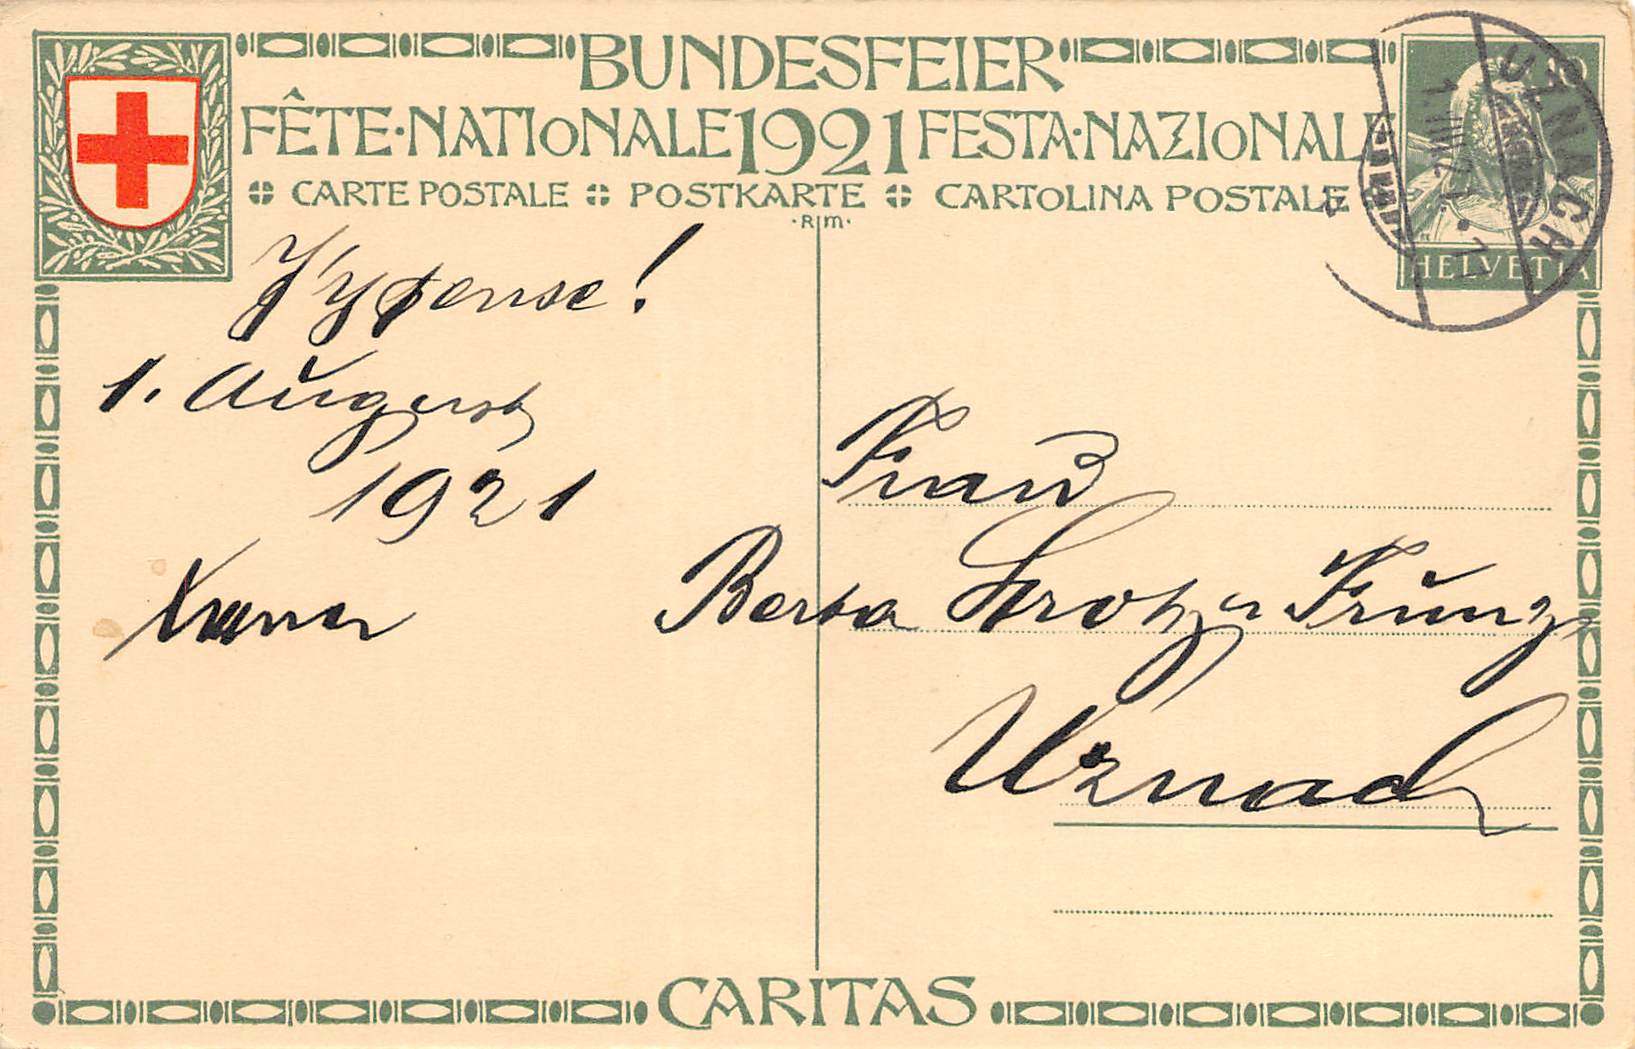 BUNDESFEIER
FÊTE·NATIONALE 1921 FESTA·NAZIONALE
CARTE POSTALE POSTKARTE CARTOLINA POSTALE
·R/M·
10
HELVETIA
UZNACH
J'y pense!
1. August
1921
Xaver
Frau
Berta Hrotzer Frunz
Uznach
CARITAS